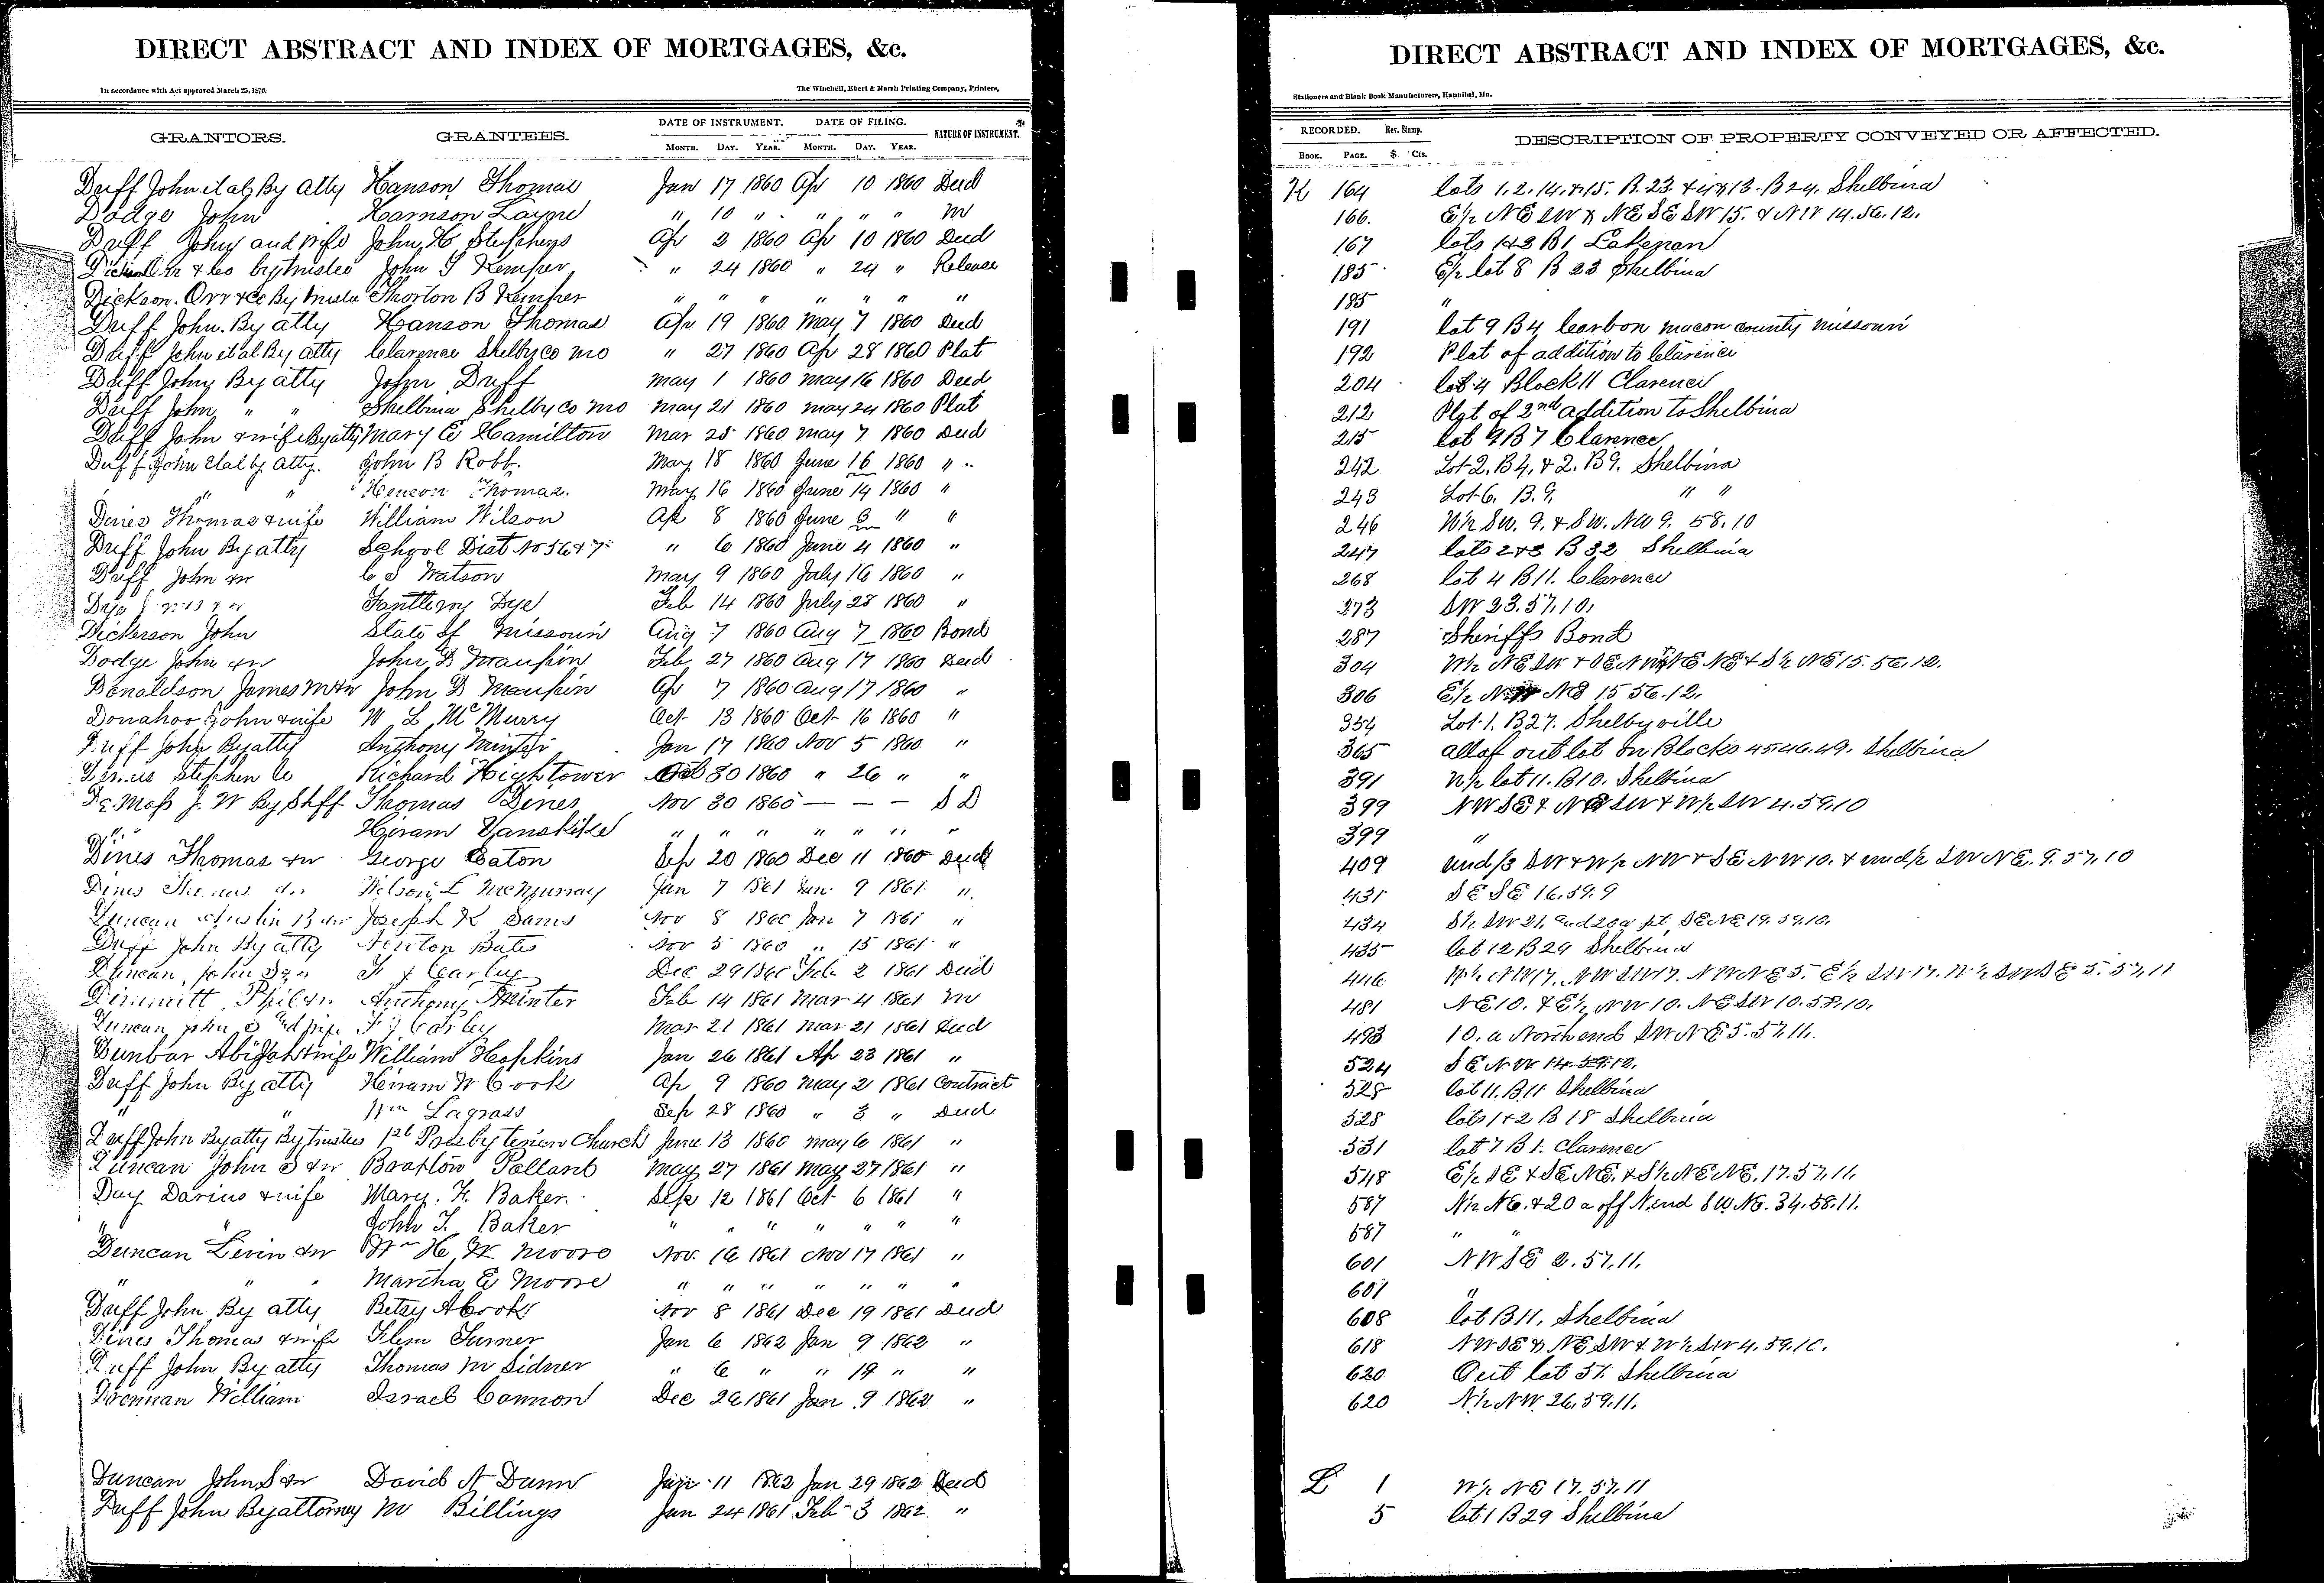 DIRECT ABSTRACT AND INDEX OF MORTGAGES, &c.
In accordance with Act approved March 25, 1870.
The Winchell, Ebert & Marsh Printing Company, Printers,
GRANTORS. GRANTEES. DATE OF INSTRUMENT. DATE OF FILING. NATURE OF INSTRUMENT.
MONTH. DAY. YEAR. MONTH. DAY. YEAR.
Duff John et al By Atty Hanson Thomas Jan 17 1860 Ap 10 1860 Deed
Dodge John Harrison Layne " 10 " " " " M
Duff John and wife John H Stephens Ap 2 1860 Ap 10 1860 Deed
Dickson Orr & Co by trustee John S Kemper " 24 1860 " 24 " Release
Dickson. Orr & Co By trustee Thorton B Kemper " " " " " " "
Duff John. By atty Hanson Thomas Ap 19 1860 May 7 1860 Deed
Duff John et al By atty Clarence Shelby co Mo " 27 1860 Ap 28 1860 Plat
Duff John By atty John Duff May 1 1860 May 16 1860 Deed
Duff John " " Shelbina Shelby Co Mo May 21 1860 May 24 1860 Plat
Duff John & wife By atty Mary E Hamilton Mar 25 1860 May 7 1860 Deed
Duff John Etal by Atty. John B Robb. May 18 1860 June 16 1860 "
" " Henson Thomas. May 16 1860 June 14 1860 "
Dines Thomas & wife William Wilson Ap 8 1860 June 3 " "
Duff John By atty School Dist No 56&7 " 6 1860 June 4 1860 "
Duff John & w C S Watson May 9 1860 July 16 1860 "
Dye & w Fantleroy Dye Feb 14 1860 July 28 1860 "
Dickerson John State of Missouri Aug 7 1860 Aug 7 1860 Bond
Dodge John & w John D Maupin Feb 27 1860 Aug 17 1860 Deed
Donaldson James M & w John D Maupin Ap 7 1860 Aug 17 1860 "
Donahoo John & wife W L McMurry Oct 13 1860 Oct 16 1860 "
Duff John By atty Anthony Minter Jan 17 1860 Nov 5 1860 "
Dines Stephen C Richard Hightower Oct 30 1860 " 26 " "
De Moss J. W By Shff Thomas Dines Nov 30 1860 — — — S D
" Hiram Vanskike " " " " " " "
Dines Thomas & w George Eaton Sep 20 1860 Dec 11 1860 Deed
Dines Thomas & w Wilson L McMurray Jan 7 1861 Jan 9 1861 "
Duncan Austin B & w Joseph K Davis Nov 8 1860 Jan 7 1861 "
Duff John By atty Newton Bates Nov 5 1860 " 15 1861 "
Duncan, John S & w F J Carley Dec 29 1860 Feb 2 1861 Deed
Dimmitt Phil & w Anthony Minter Feb 14 1861 Mar 4 1861 M
Duncan John S and wife F J Carley Mar 21 1861 Mar 21 1861 Deed
Dunbar Abijah & wife William Hopkins Jan 26 1861 Ap 23 1861 "
Duff John By atty Hiram W Cook Ap 9 1860 May 2 1861 Contract
" " Wm Lagrass Sep 28 1860 " 3 " Deed
Duff John By atty By trustees 1st Presbyterian Church June 13 1860 May 6 1861 "
Duncan John S & w Braxton Pollard May 27 1861 May 27 1861 "
Day Darius & wife Mary. F. Baker. Sep 12 1861 Oct 6 1861 "
" " John T. Baker " " " " " " "
Duncan Levin & w Wm H W Moore Nov. 16 1861 Nov 17 1861 "
" " " Martha E Moore " " " " " " "
Duff John By atty Betsy A Crooks Nov 8 1861 Dec 19 1861 Deed
Dines Thomas & wife Klem Turner Jan 6 1862 Jan 9 1862 "
Duff John By atty Thomas M Sidner " 6 " " 19 " "
Drennan William Israel Cannon Dec 26 1861 Jan 9 1862 "
Duncan John S & w David N Dunn Jan 11 1862 Jan 29 1862 Deed
Duff John By attorney M Billings Jan 24 1861 Feb 3 1862 "
DIRECT ABSTRACT AND INDEX OF MORTGAGES, &c.
Stationers and Blank Book Manufacturers, Hannibal, Mo.
RECORDED. Rev. Stamp. DESCRIPTION OF PROPERTY CONVEYED OR AFFECTED.
BOOK. PAGE. $ Cts.
K 164 lots 1, 2, 14, & 15. B. 23 & 4 & 13. B 24. Shelbina
166. E½ NE SW & NE SE SW 15. & NW 14. 56. 12.
167 lots 1 & 2 B 1 Lakenan
185 E½ lot 8 B 23 Shelbina
185 "
191 lot 9 B 4 Carbon Macon county Missouri
192 Plat of addition to Clarence
204 lot 4 Block 11 Clarence
212 Plat of 2nd addition to Shelbina
215 lot 9 B 7 Clarence
242 Lot 2. B 4. & 2. B 9. Shelbina
243 Lot 6. B. 9. " "
246 W½ SW. 9. & SW. NW 9. 58. 10
247 lots 2 & 3 B 32 Shelbina
268 lot 4 B 11. Clarence
273 SW 23. 57. 10.
287 Sheriffs Bond
304 W½ NE SW & SE NW NE NE & S½ NE 15. 56. 12.
306 E½ NW NE 15 56. 12.
354 Lot 1. B 27. Shelbyville
365 all of out lot on Blocks 45. 46. 49. Shelbina
391 N½ lot 11. B 10. Shelbina
399 NW SE & NE SW & W½ SW 4. 59. 10
399 "
409 und ⅓ SW & W½ NW & SE NW 10. & und ½ SW NE. 9. 57. 10
431 SE SE 16. 59. 9
434 S½ SW 21. and 20 a pt SE NE 19. 59. 10.
435 lot 12 B 29 Shelbina
446 W½ NW 17. NW SW 17. NW NE 5. E½ SW 17. W½ SW SE 5. 57. 11
481 NE 10. & E½ NW 10. NE SW 10. 58. 10.
493 10. a North end SW NE 5. 57. 11.
524 SE NW 14. 59. 12.
528 lot 11. B 11 Shelbina
528 lots 1 & 2 B 18 Shelbina
531 lot 7 B 1. Clarence
548 E½ SE & SE NE. & S½ NE NE. 17. 57. 11.
587 N½ NE. & 20 a off N. end SW NE. 34. 58. 11.
587 " "
601 NW SE 2. 57. 11.
601 "
608 lot B 11. Shelbina
618 NW SE & NE SW & W½ SW 4. 59. 10.
620 Out lot 51. Shelbina
620 N½ NW 26. 59. 11.
L 1 W½ NE 17. 57. 11
5 lot 1 B 29 Shelbina